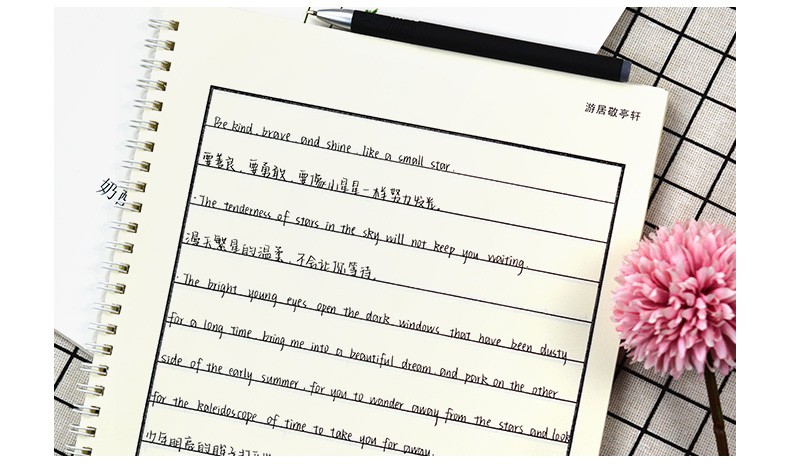 游居敬亭轩
Be kind, brave and shine like a small star.
要善良，要勇敢，要像小星星一样努力发光。
·The tenderness of stars in the sky will not keep you waiting.
漫天繁星的温柔，不会让你等待。
·The bright young eyes open the dark windows that have been dusty
for a long time bring me into a beautiful dream, and park on the other
side of the early summer, for you to wander away from the stars and look
for the kaleidoscope of time to take you far away.
少年明亮的眸子
奶